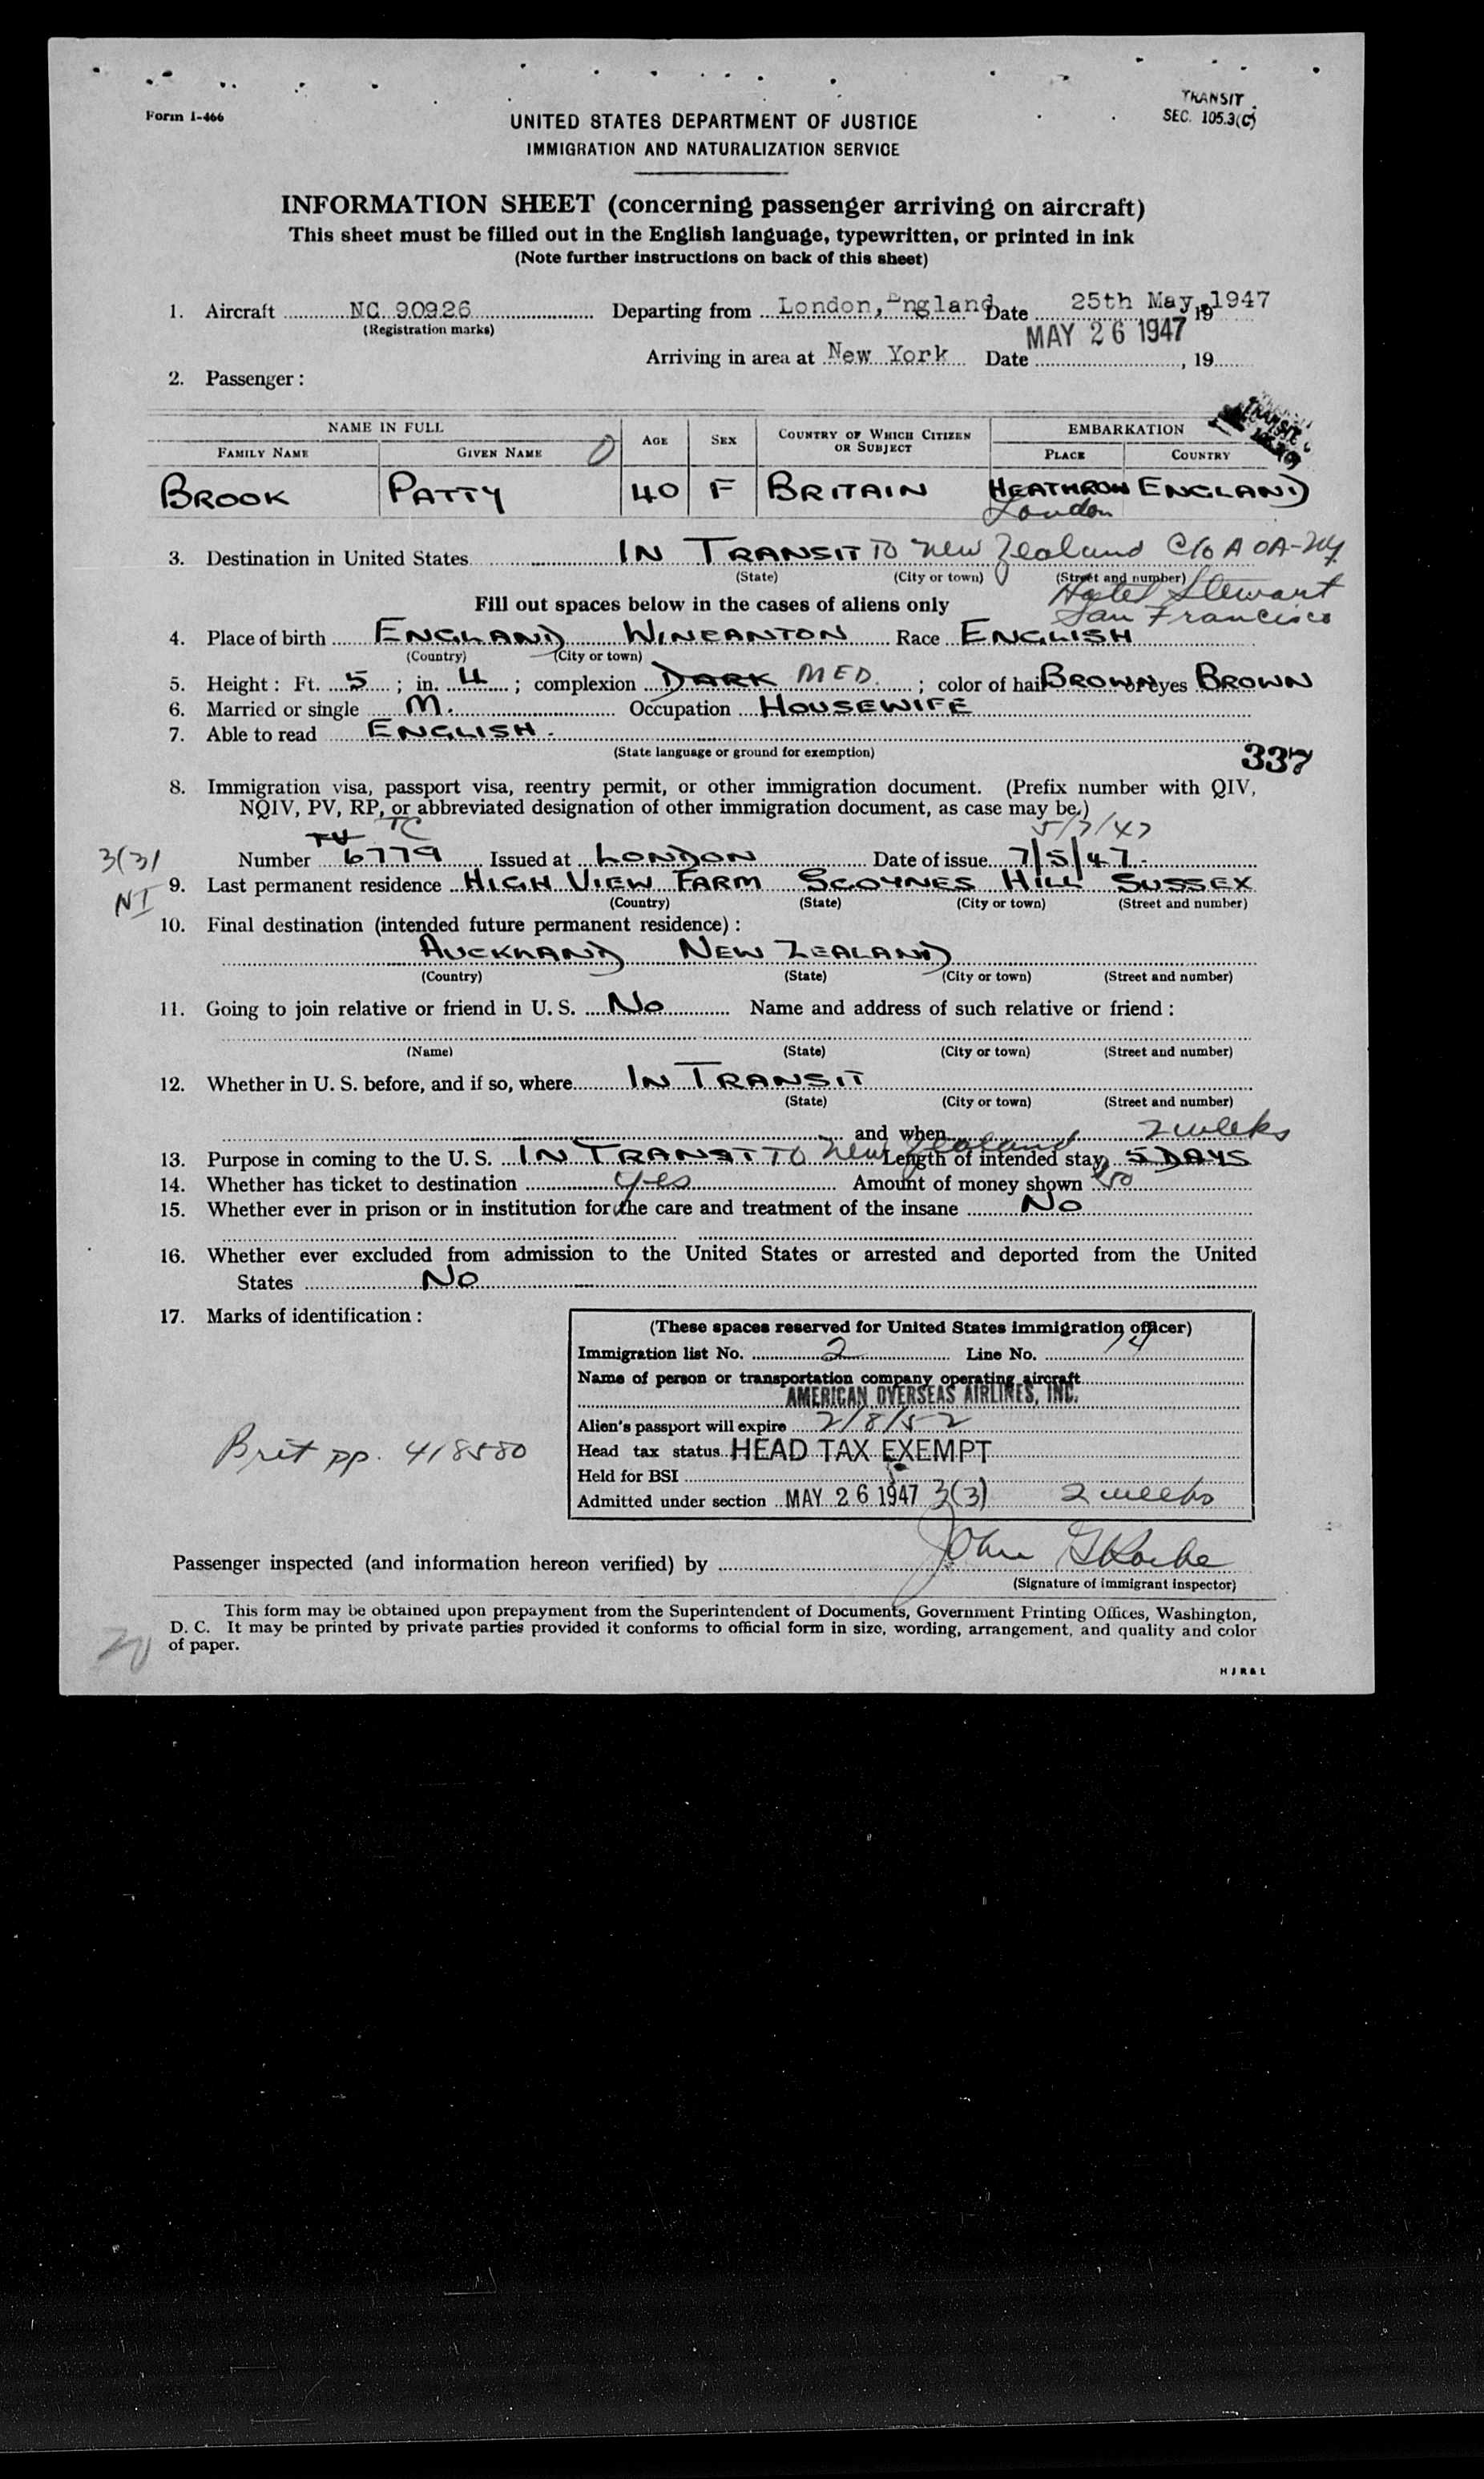 TRANSIT
SEC. 105.3(C)
Form I-466
UNITED STATES DEPARTMENT OF JUSTICE
IMMIGRATION AND NATURALIZATION SERVICE
INFORMATION SHEET (concerning passenger arriving on aircraft)
This sheet must be filled out in the English language, typewritten, or printed in ink
(Note further instructions on back of this sheet)
1. Aircraft NC 90926 Departing from London, England Date 25th May, 1947 19
(Registration marks)
MAY 26 1947
Arriving in area at New York Date , 19
2. Passenger :
NAME IN FULL AGE SEX COUNTRY OF WHICH CITIZEN OR SUBJECT EMBARKATION
FAMILY NAME GIVEN NAME PLACE COUNTRY
TRANSIT
BROOK PATTY 40 F BRITAIN HEATHROW ENGLAND
London
3. Destination in United States IN TRANSIT TO New Zealand C/o AOA-NY
(State) (City or town) (Street and number)
Hotel Stewart
San Francisco
Fill out spaces below in the cases of aliens only
4. Place of birth ENGLAND WINCANTON Race ENGLISH
(Country) (City or town)
5. Height : Ft. 5 ; in. 4 ; complexion DARK MED. ; color of hair BROWN of eyes BROWN
6. Married or single M. Occupation HOUSEWIFE
7. Able to read ENGLISH.
(State language or ground for exemption)
337
8. Immigration visa, passport visa, reentry permit, or other immigration document. (Prefix number with QIV,
NQIV, PV, RP, or abbreviated designation of other immigration document, as case may be.)
TC 5/7/47
3(3)
Number 6779 Issued at LONDON Date of issue 7/5/47.
NI
9. Last permanent residence HIGH VIEW FARM SCOYNES HILL SUSSEX
(Country) (State) (City or town) (Street and number)
10. Final destination (intended future permanent residence) :
AUCKLAND NEW ZEALAND
(Country) (State) (City or town) (Street and number)
11. Going to join relative or friend in U. S. No Name and address of such relative or friend :
(Name) (State) (City or town) (Street and number)
12. Whether in U. S. before, and if so, where IN TRANSIT
(State) (City or town) (Street and number)
and when 2 weeks
13. Purpose in coming to the U. S. IN TRANSIT TO New Zealand Length of intended stay 5 DAYS
14. Whether has ticket to destination yes Amount of money shown 50
15. Whether ever in prison or in institution for the care and treatment of the insane No
16. Whether ever excluded from admission to the United States or arrested and deported from the United
States No
17. Marks of identification :
(These spaces reserved for United States immigration officer)
Immigration list No. 2 Line No. 14
Name of person or transportation company operating aircraft
AMERICAN OVERSEAS AIRLINES, INC.
Alien's passport will expire 2/8/52
Brit pp. 418580
Head tax status HEAD TAX EXEMPT
Held for BSI
Admitted under section MAY 26 1947 3(3) 2 weeks
Passenger inspected (and information hereon verified) by John
(Signature of immigrant inspector)
This form may be obtained upon prepayment from the Superintendent of Documents, Government Printing Offices, Washington,
D. C. It may be printed by private parties provided it conforms to official form in size, wording, arrangement, and quality and color
of paper.
20
H J R & L